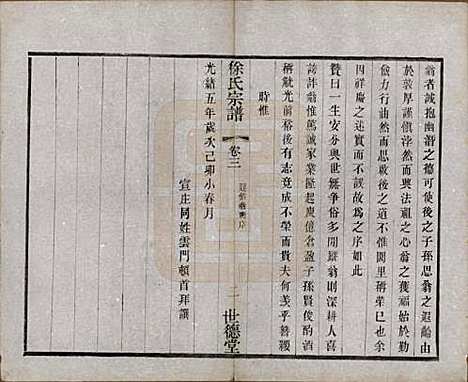 翁者誠抱幽潛之德可使後之子孫思翁之遐齡由
於敦厚謹慎淳然而興法祖之心翁之獲福勤於勤
儉力行油然而思啟後之道不惟閭里稱榮已也余
四祥慶之述實而不誤故為之序如此
贊曰一生安分與世無爭俗多聞翁則深耕人喜
訪許翁惟篤誠家業隆起慶億倉盈子孫賢俊酌酒
稱觥光前裕後有志竟成不榮而榮夫何羨乎簪纓
時惟
光緒五年歲次己卯小春月
宣庄同姓雲門頓首拜撰
徐氏宗譜
卷三
二
世德堂